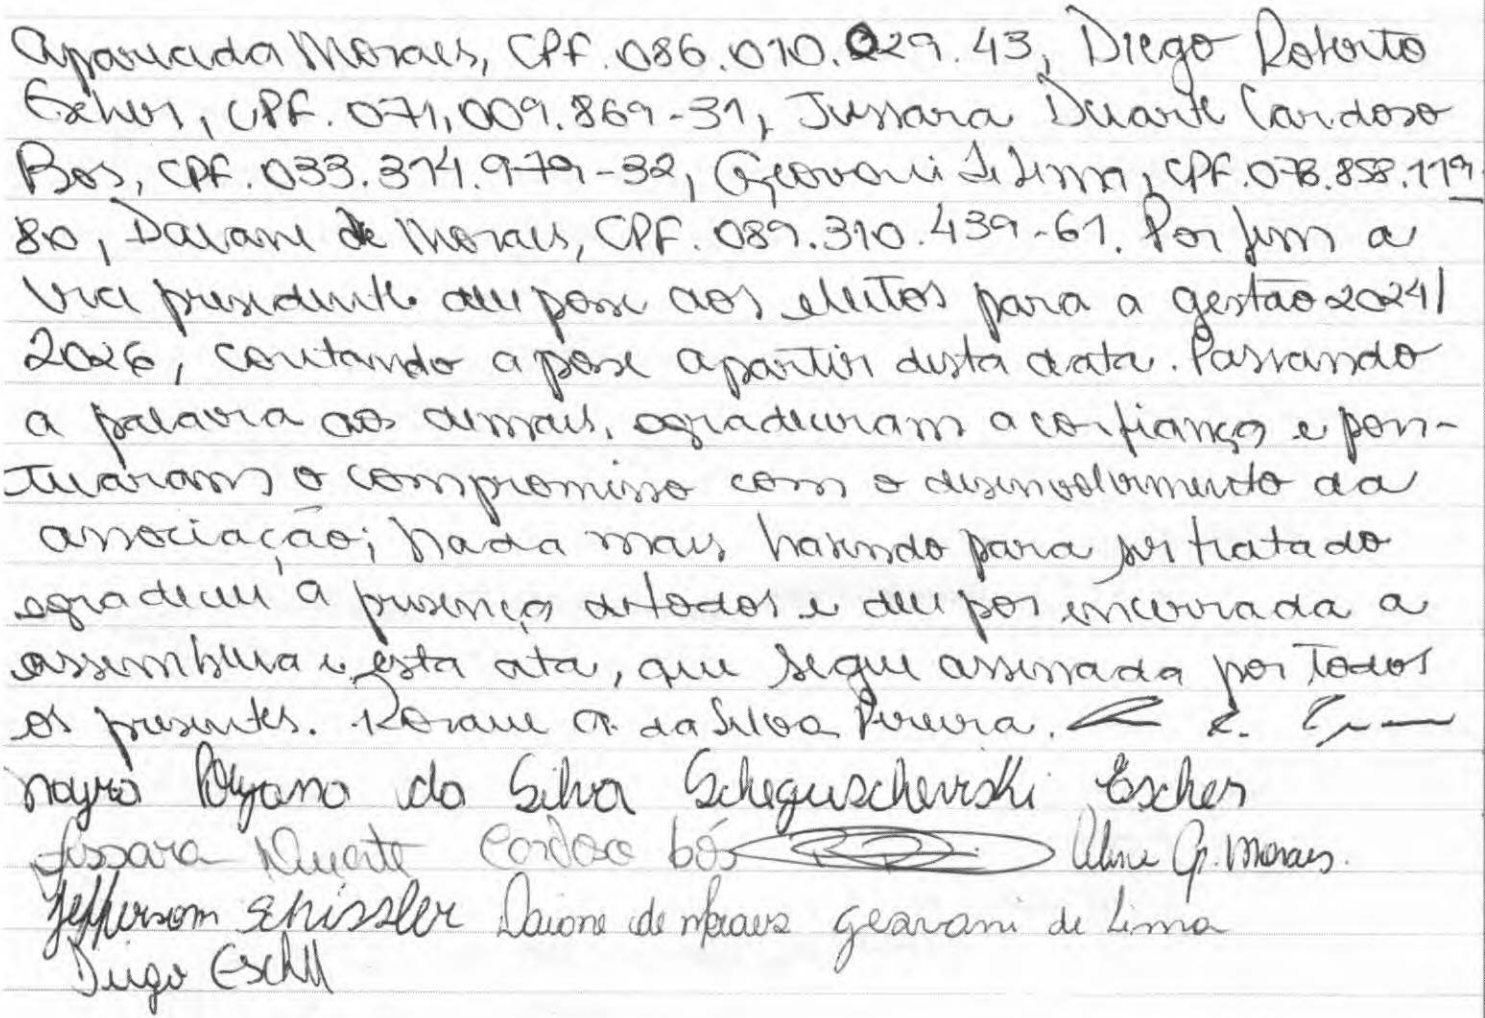 Aparecida Moraes, CPF. 086.010.029.43, Diego Roberto
Escher, CPF. 071,009.869-31, Jussara Duarte Cardoso
Bos, CPF. 033.314.979-32, Geovani de Lima, CPF.078.858.119-
80, Daiane de Moraes, CPF. 089.310.439-61. Por fim a
vice presidente deu posse aos eleitos para a gestão 2024/
2026, contando a posse apartir desta data. Passando
a palavra aos demais, agradeceram a confiança e pon-
tuaram o compromisso com o desenvolvimento da
associação; Nada mais havendo para ser tratado
agradeceu a presença de todos e deu por encerrada a
assembleia e esta ata, que segue assinada por todos
os presentes. Rosane A. da Silva Pereira.
Nayra Pollyana da Silva Scheguschevski Escher
Jussara Duarte Cardoso bós Aline Ap. Moraes.
Jeffersom Shissler Daiane de Moraes geovani de Lima
Diego Escher